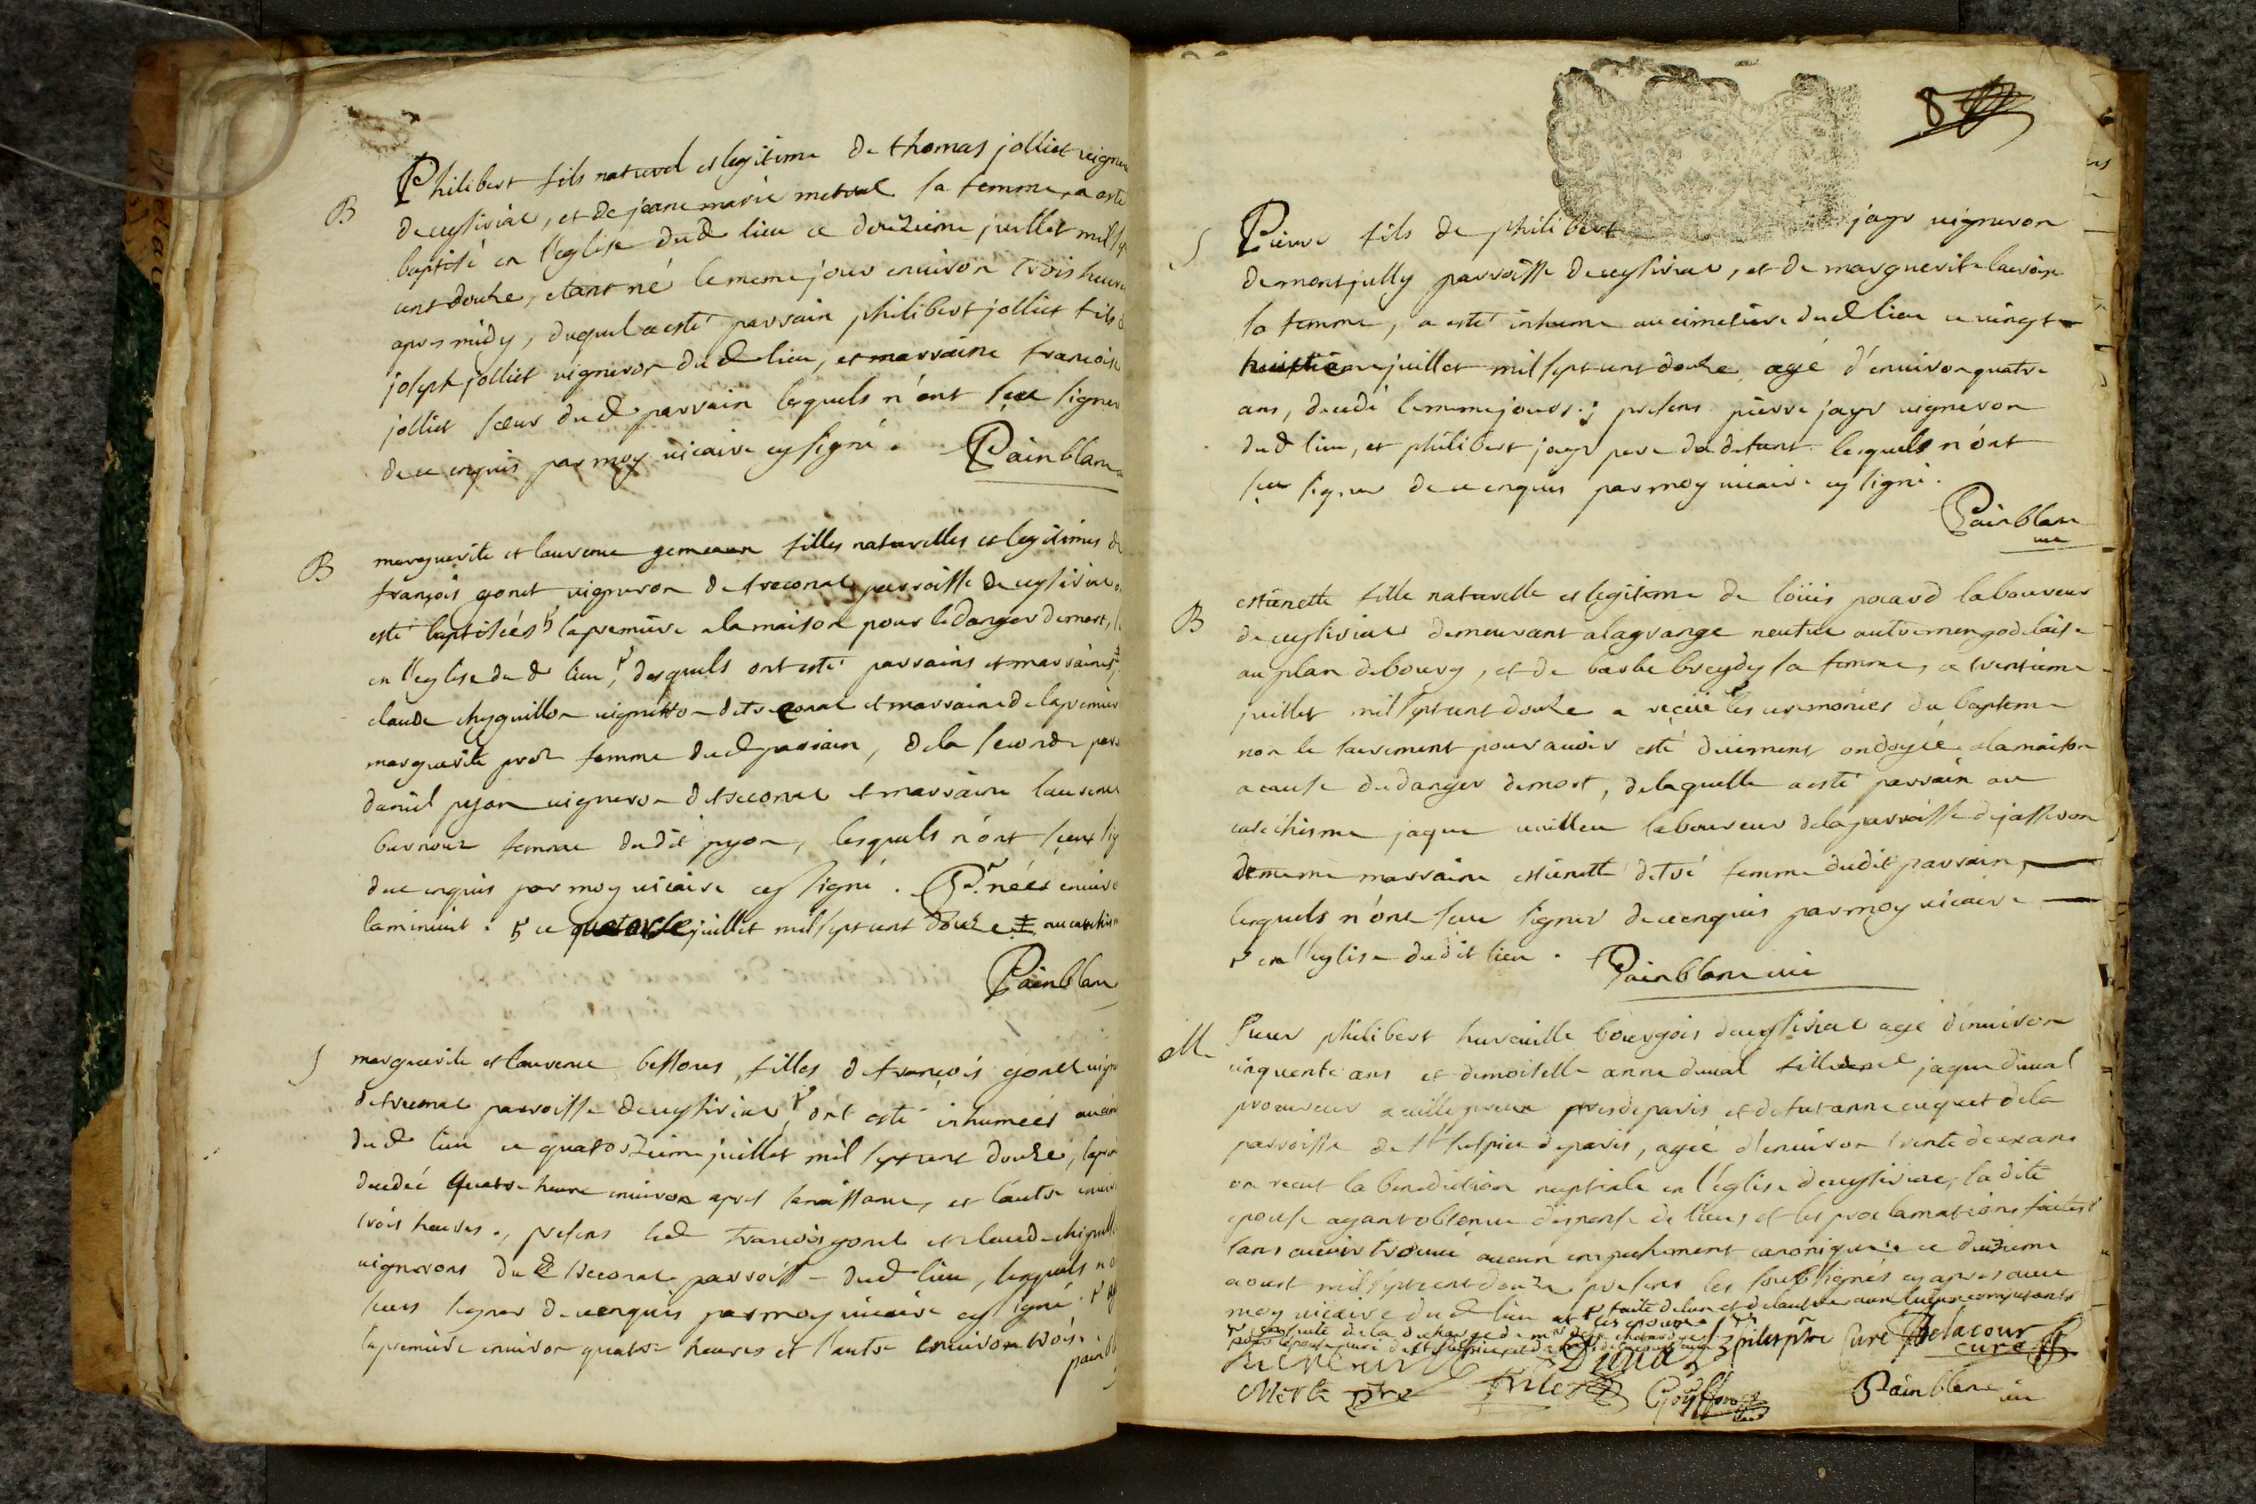 B
Philibert fils naturel et legitime de thomas jolliet vigner
de ceyseriat, et de jeane marie metral sa femme, a esté
baptisé en l'eglise dud lieu ce douzieme juillet mil sept
cent douze, etant né le meme jour environ trois heures
apres midy, duquel a esté parrain philibert jolliet fils d
joseph jolliet vigneron dud lieu, et marraine francoise
jolliet sœur dud parrain lesquels n'ont sçeu signer
de ce enquis par moy vicaire cy signé. Painblanc
B
marguerite et laurence gemeaux filles naturelles et legitimes de
françois gonet vigneron de treconat parroisse de ceyseriat
esté baptiseés la premiere a la maison pour le danger de mort,
en l'eglise dud lieu, desquels ont esté parrains et marraines
claude chyguillon vigneron de treconat et marraine de la premiere
marguerite proz femme dud parrain, de la seconde
daniel pyon vigneron de treconat et marraine laurence
burnouz femme dudit pyon, lesquels n'ont sceus sig
de ce enquis par moy vicaire cy signé. neés environ
la minuit. ce quatorze juillet mil sept cent douze au catechisme
Painblanc
S
marguerite et laurence bessones, filles de françois gonet vigne
de treconat parroisse de ceyseriat, ont esté inhumées au cim
dud lieu ce quatorzieme juillet mil sept cent douze, la pre
decedeé quatre heure environ apres sa naissance, et l'autre environ
trois heures, presens led françois gonet et claude chiguill
vignerons dud treconat parroisse dud lieu, lesquels n'o
sceus signer de ce enquis par moy vicaire cy signé.
la premiere environ quatre heures et l'autre environ trois.
painbl
8
S
Pierre fils de philibert jayr vigneron
de montjully parroisse de ceyseriat, et de marguerite
sa femme, a esté inhumé au cimetiere dud lieu ce vingt
huistieme juillet mil sept cent douze, agé d'environ quatre
ans, decedé le meme jour; presens pierre jayr vigneron
dud lieu, et philibert jayr pere du defunt lesquels n'ont
sçeu signer de ce enquis par moy vicaire cy signé.
Painblanc
vic
B
estienette fille naturelle et legitime de loüis pocard laboureur
de ceyseriat demeurant a la grange neutve autrement
au plan de bourg, et de barbe breydy sa femme, ce trentieme
juillet mil sept cent douze a reçüe les ceremonies du baptem
non le sacrement pour avoir esté düement ondoyée a la maison
a cause du danger de mort, de laquelle a esté parrain au
catechisme jaque vuilleu laboureur de la parroisse de jasseron
de meme marraine estienette detré femme dudit parrain,
lesquels n'ont sceu signer de ce enquis par moy vicaire
en l'eglise dudit lieu. Painblanc vic
M
Sieur philibert bourgois de ceyseriat agé d'environ
cinquente ans et demoiselle anne duval fille de jaque duval
procureur a pres de paris et de susanne de la
parroisse de st sulpice de paris, agée d'environ trente deux ans
on recut la benediction nuptiale en l'église de ceyseriat, la dite
epouse ayant obtenue dispense de lieu, et les proclamations faites
sans avoir trouvé aucun empechement canonique, ce dixieme
aoust mil sept cent douze presens les soubsignés cy apres avec
moy vicaire dud lieu
Duval
pbre Curé Delacour
curé
Merle pbre
Goyffon
Painblanc vic